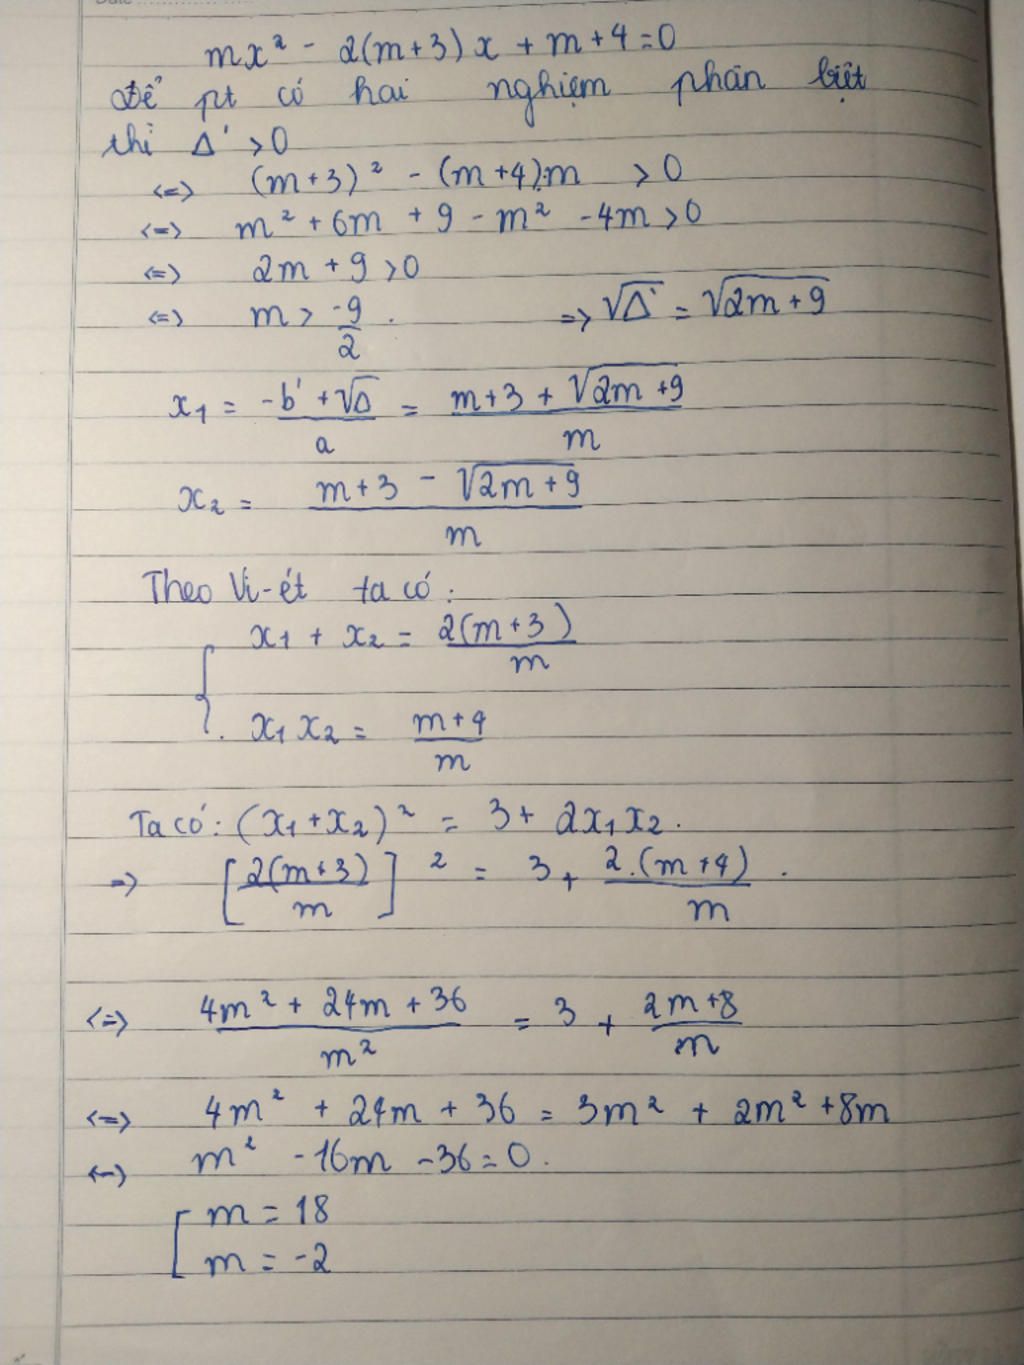 mx² - 2(m+3)x + m+4=0
Để pt có hai nghiệm phân biệt
thì Δ' >0
<=> (m+3)² - (m+4).m >0
<=> m² + 6m + 9 - m² - 4m >0
<=> 2m + 9 >0
<=> m > -9/2 . => √Δ' = √2m+9
x₁ = -b' + √Δ / a = m+3 + √2m+9 / m
x₂ = m+3 - √2m+9 / m
Theo Vi-ét ta có:
{ x₁ + x₂ = 2(m+3) / m
x₁ x₂ = m+4 / m
Ta có: (x₁+x₂)² = 3+ 2x₁x₂.
=> [2(m+3) / m]² = 3 + 2.(m+4) / m .
<=> 4m² + 24m + 36 / m² = 3 + 2m+8 / m
<=> 4m² + 24m + 36 = 3m² + 2m² +8m
<=> m² - 16m - 36=0.
[ m = 18
m = -2